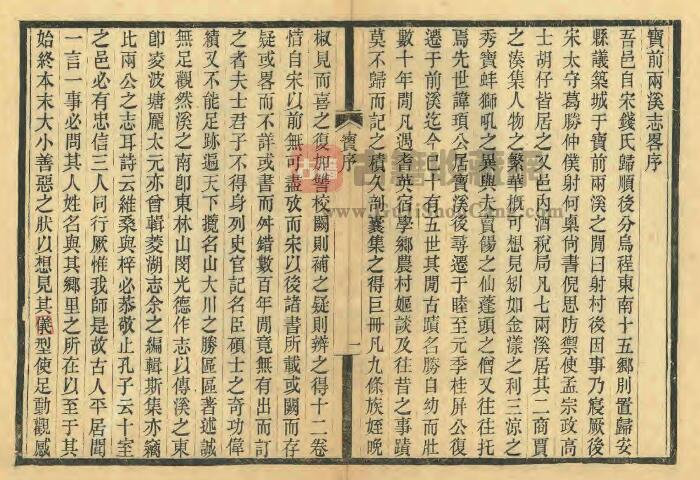 寶前兩溪志畧序
吾邑自宋錢氏歸順後分烏程東南十五鄉則置歸安
縣議築城于寶前兩溪之閒曰射村後因事乃寢厥後
宋太守葛勝仲僕射何㮚尙書倪思防禦使孟宗政高
士胡仔皆居之又邑內酒稅局凡七兩溪居其二商賈
之湊集人物之繁華槪可想見矧如金漾之利三涼之
秀寶蚌獅吼之異與夫賣餳之仙蓬頭之僧又往往托
焉先世諱瑣公居寶溪後尋遷于睦至元季桂屏公復
遷于前溪迄今已十有五世其閒古蹟名勝自幼而壯
數十年閒凡遇耆英宿學鄉農村嫗談及往昔之事蹟
莫不歸而記之積久剖囊集之得巨冊凡九條族姪晚
寶序
一
椒見而喜之復加讐校闕則補之疑則辨之得十二卷
惜自宋以前無可盡攷而宋以後諸書所載或闕而存
疑或畧而不詳或書而舛錯數百年閒竟無有出而訂
之者夫士君子不得身列史官記名臣碩士之奇功偉
績又不能足跡遍天下攬名山大川之勝區區著述誠
無足觀然溪之南卽東林山閔光德作志以傳溪之東
卽凌波塘龎太元亦曾輯菱湖志余之編輯斯集亦竊
比兩公之志耳詩云維桑與梓必恭敬止孔子云十室
之邑必有忠信三人同行厥惟我師是故古人平居聞
一言一事必問其人姓名與其鄉里之所在以至于其
始終本末大小善惡之狀以想見其儀型使足動觀感
www.GujiShouCang.com